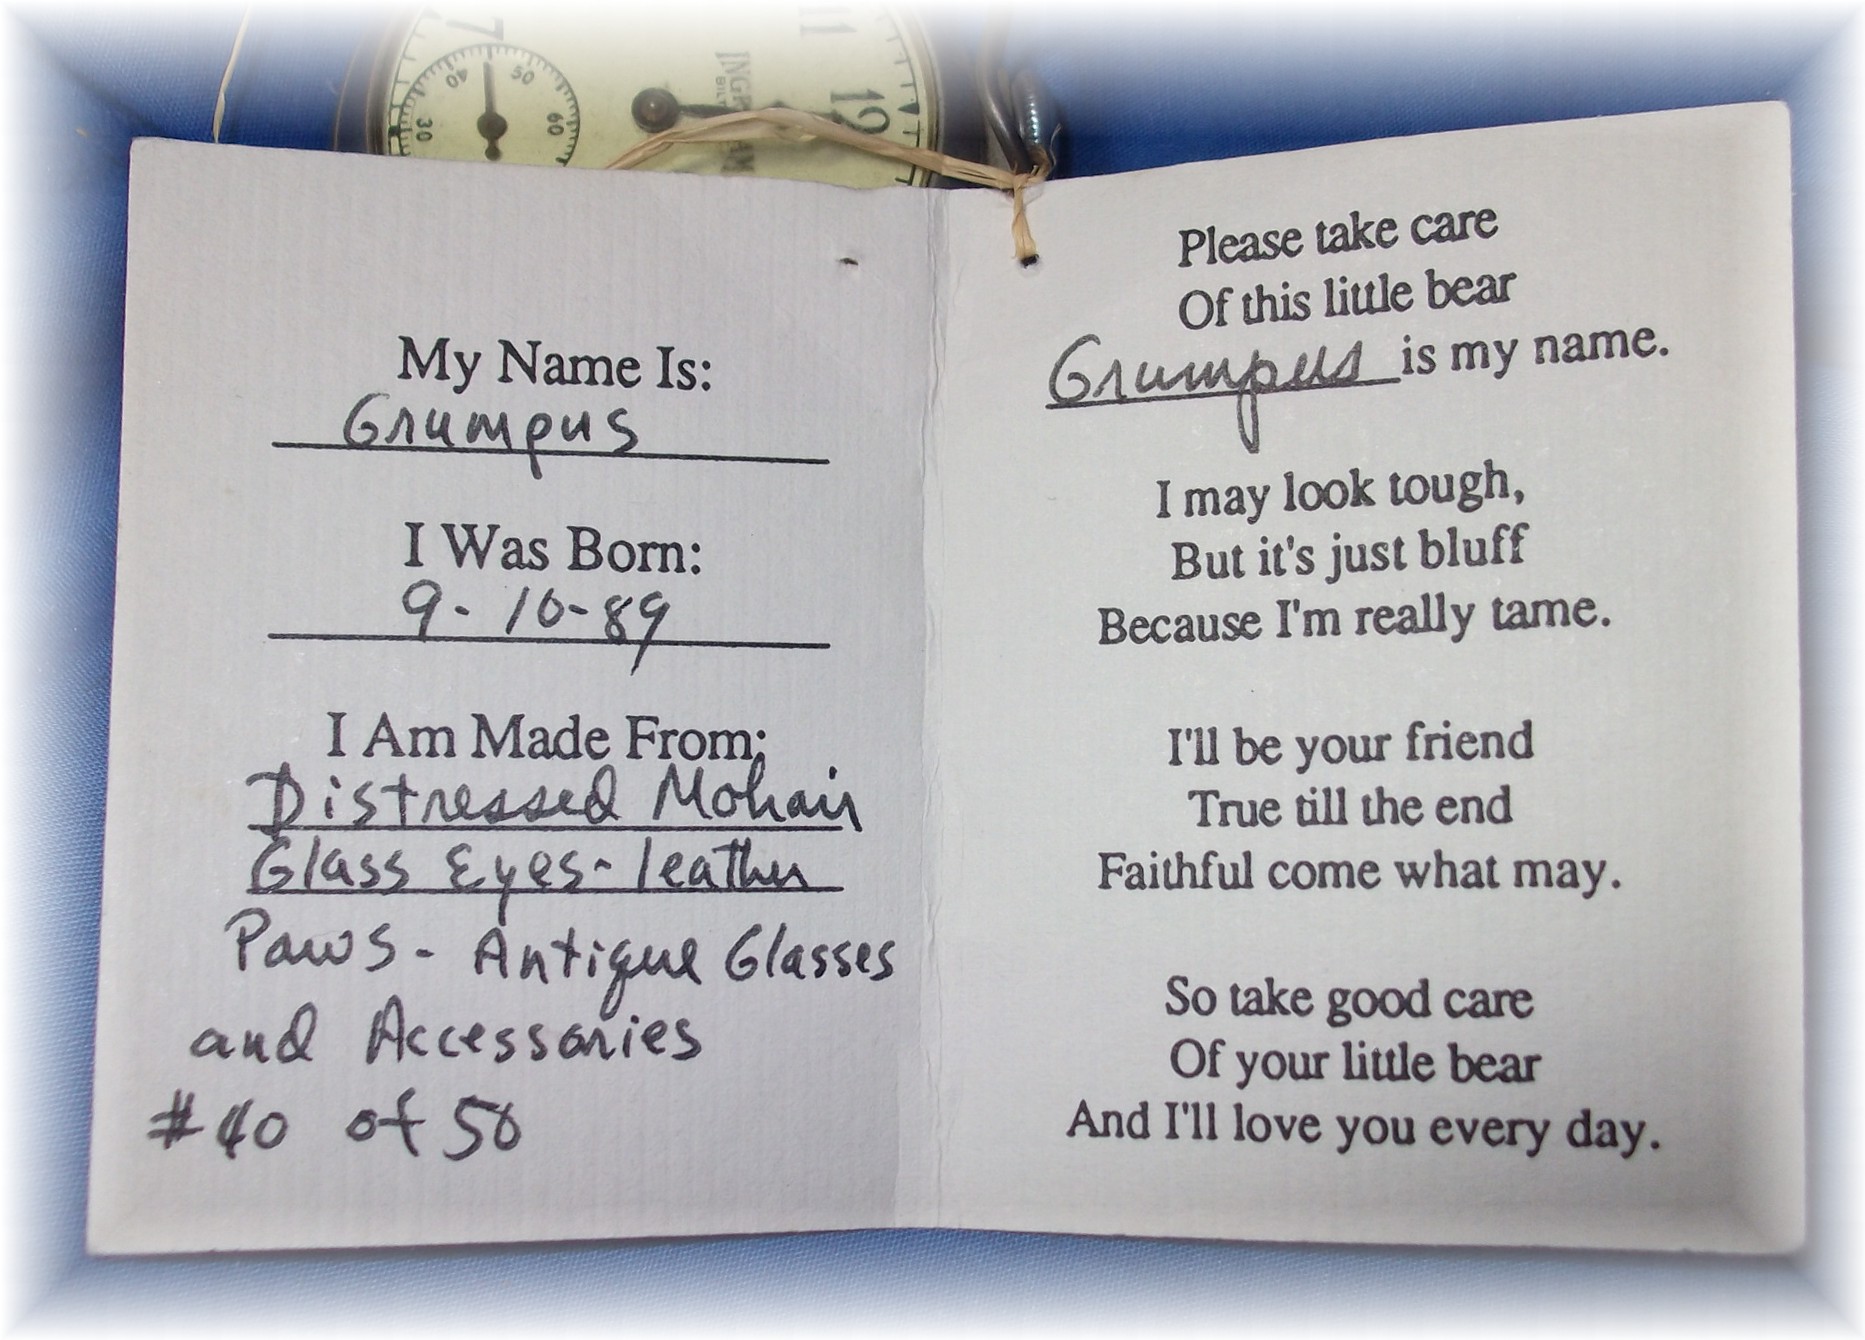 11
12
7
40
50
60
30
My Name Is:
Grumpus
I Was Born:
9-10-89
I Am Made From:
Distressed Mohair
Glass Eyes - leather
Paws - Antique Glasses
and Accessories
#40 of 50
Please take care
Of this little bear
Grumpus is my name.
I may look tough,
But it's just bluff
Because I'm really tame.
I'll be your friend
True till the end
Faithful come what may.
So take good care
Of your little bear
And I'll love you every day.